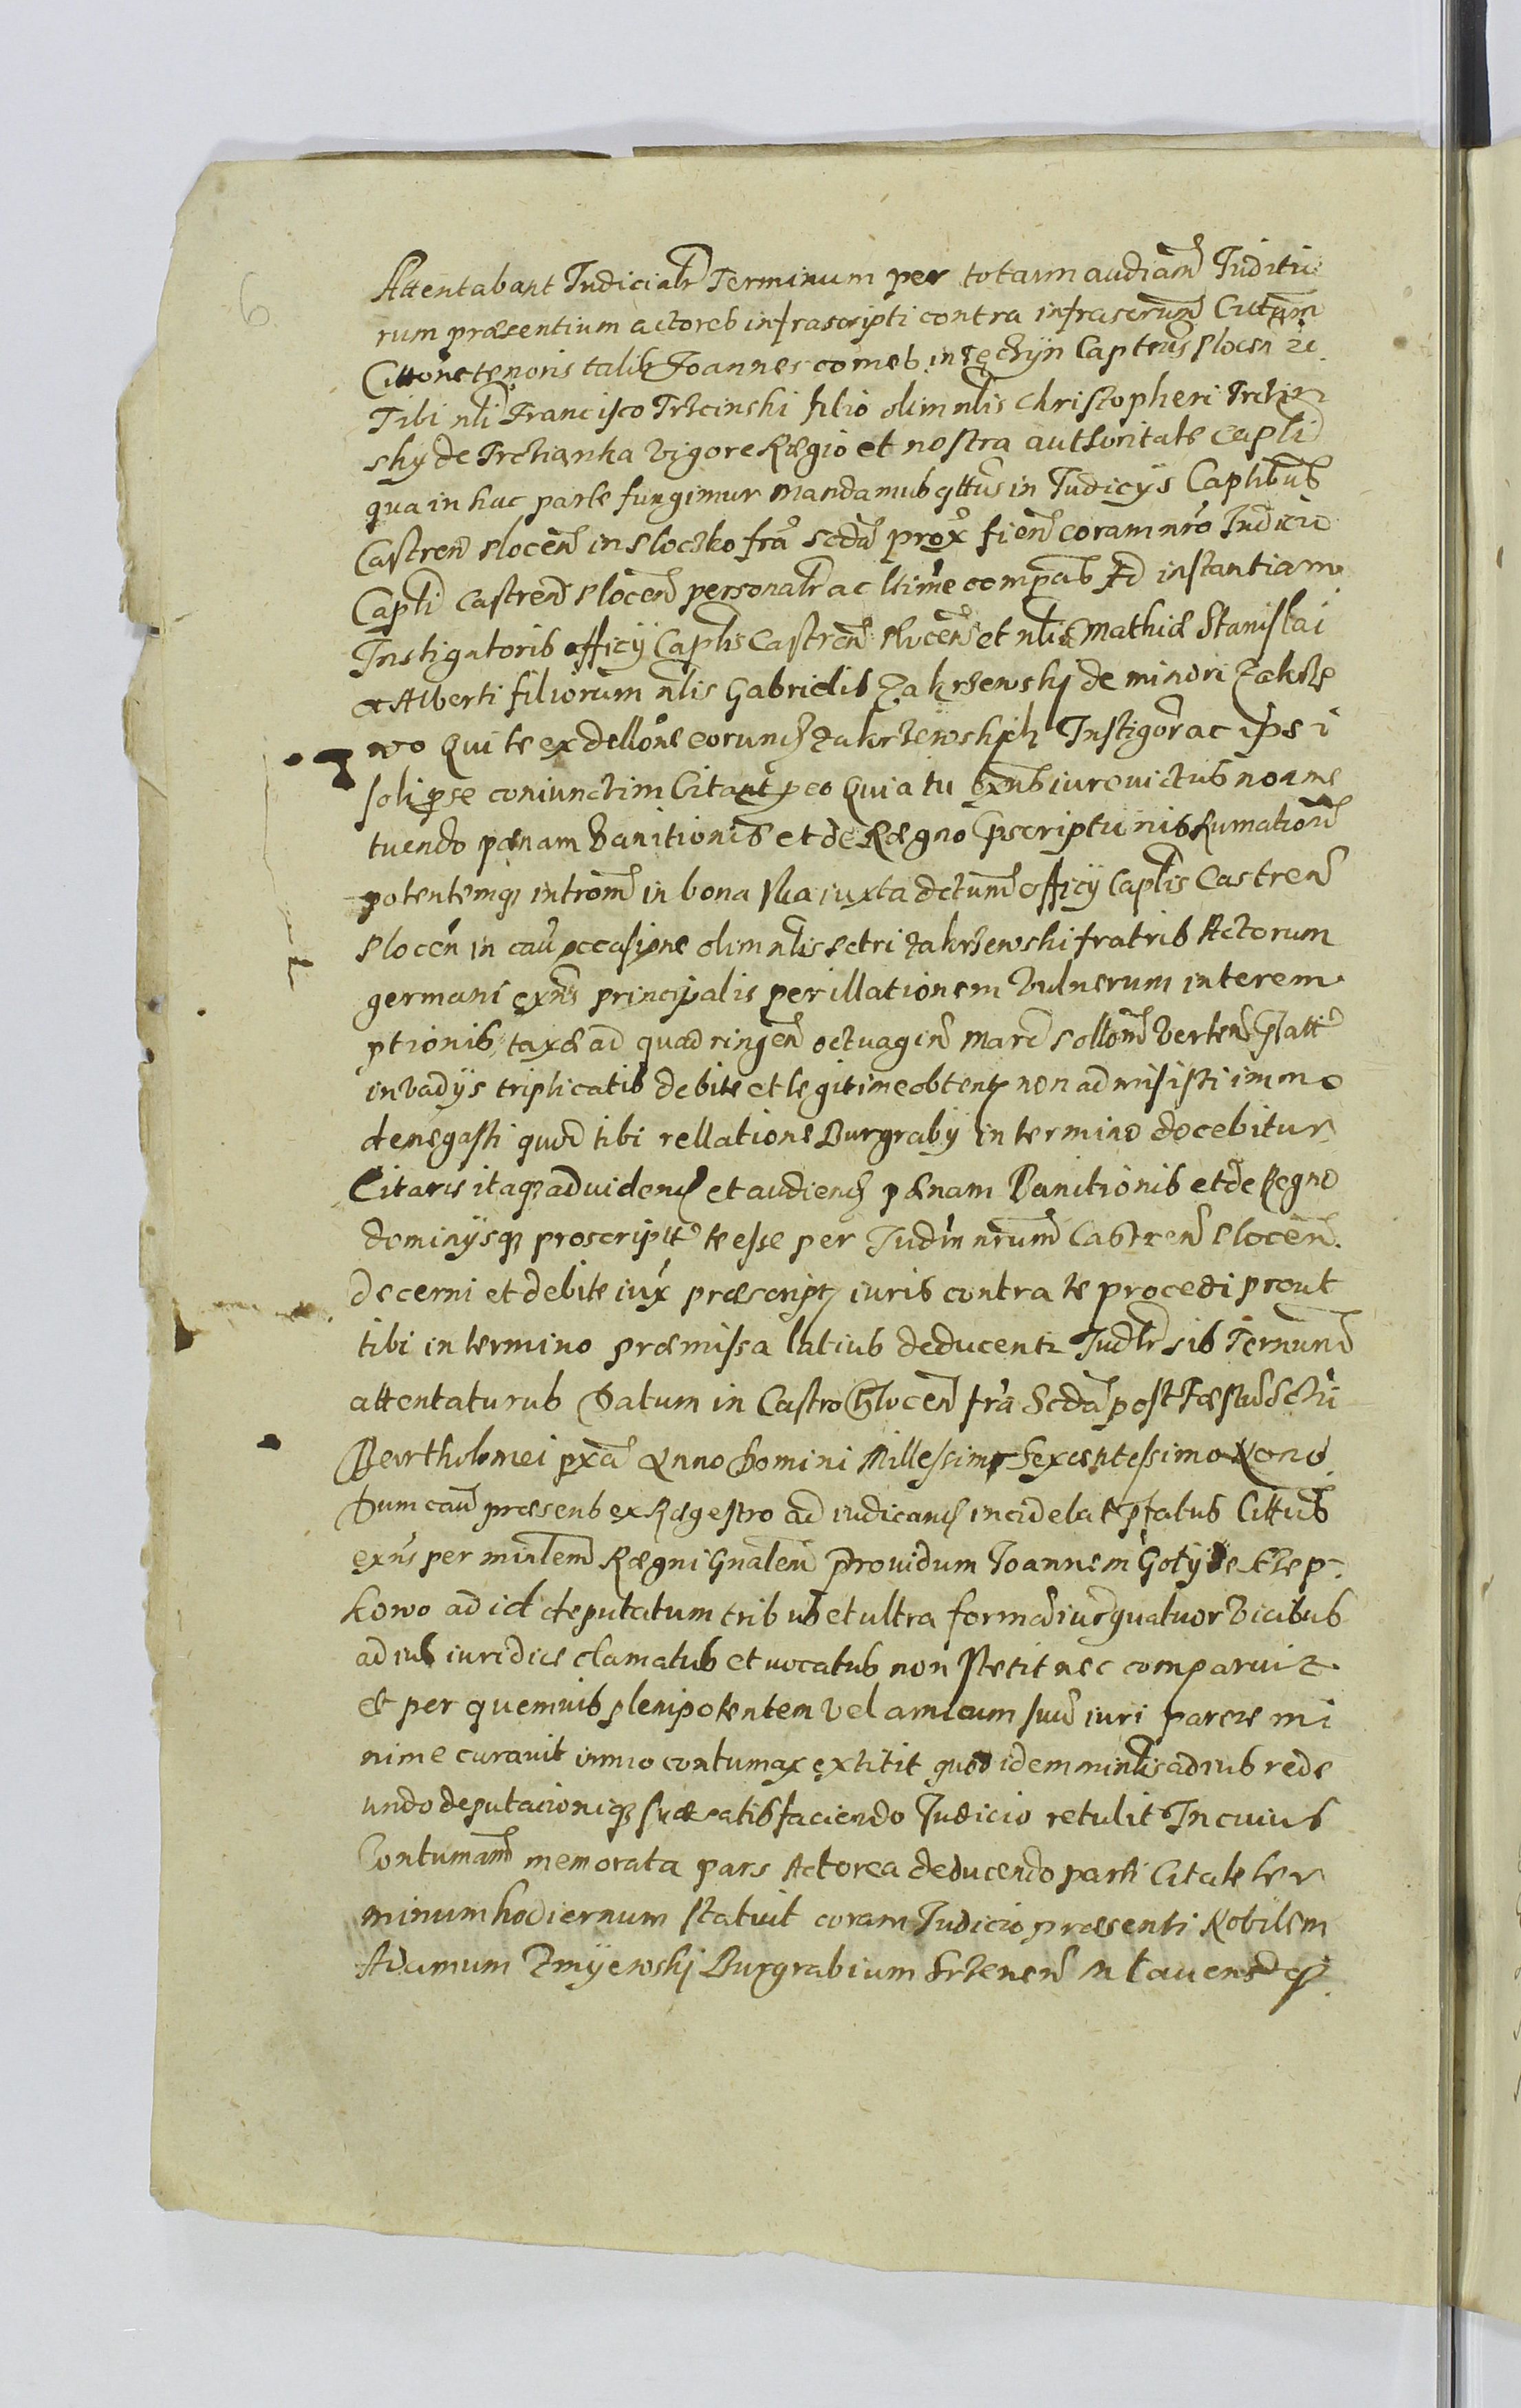 6
Attentabant Judicialr Terminum per totam audiam Juditio
rum præsentium actores infrascripti contra infrascrum Cittum
Cittone tenoris talis Joannes comes in Capteus Plocen
Tibi nli Francisco Trzcinski filio olim nlis Christopheri Trchzin
sky de Trchianka vigore Rægio et nostra authoritate Capli
qua in hac parte fungimur mandamus qttus in Judicijs Caplibus
Castren Plocen in Ploczko fra scda prox fien coram nro Judicio
Capli Castren Plocen personalr ac ltime compas Ad instantiam
Instigatoris officij Caplis Castren Plocen et nliu Mathiæ Stanislai
et Alberti filiorum nlis Gabrielis Zakrzewskj de minori Zakrze
wo Qui te ex dellone eorund Zakrzewskich Instigor ac ipsi
soli per se coniunctim Citant peo Quia tu exns iure victus non me
tuendo pœnam banitionis et de Rægno pscriptionis Rumationem
potentemq introm in bona sua iuxta dctum officij Caplis Castren
Plocen in cau occasione olim nlis Petri Zakrzewski fratris Actorum
germani exns principalis per illationem vulnerum interem
ptionis, taxæ ad quadringen octuagin marc pollon
in vadijs triplicatis debite et legitime obtent non admisisti immo
denegasti quod tibi rellatione Burgrabij in termino docebitur
Citaris itaq ad videnq et audiend pœnam Banitionis et de Regno
dominijsq proscript te esse per Judm nrum Castren Plocen
decerni et debite iux præscript iuris contra te procedi prout
tibi in termino præmissa latius deducent Judlr sis Termunum
attentaturus Datum in Castro Plocen fra Scda post Fæstu Scti
Bartholomei pxa Anno Domini Millessimo Sexcentessimo Nono
Dum cau præsens ex Rægestro ad iudicand incidebat pfatus Cittus
exns per minlem Rægni Gnalem Providum Joannem Goty de Szep
kowo ad id deputatum tribus et ultra forma iur quatuor vicibus
ad ius iuridice clamatus et vocatus non stetit nec comparuit
et per quemvis plenipotentem vel amicum suu iuri parere mi
nime curavit immo contumax extitit quod idem minlis ad ius rede
undo deputacioniq suæ satisfaciendo Judicio retulit In cuius
Contumam memorata pars Actorea deducendo parti Citatæ ter
minum hodiernum statuit coram Judicio præsenti Nobilem
Adamum Zmijewskj Burgrabium Srzenen